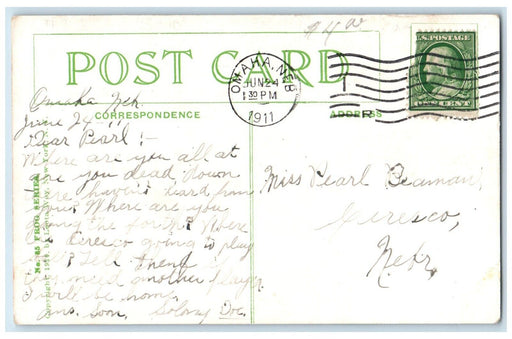 $4.00
POST CARD
U.S. POSTAGE
ONE CENT
OMAHA, NEB
JUN 24
1 30 PM
1911
CORRESPONDENCE
ADDRESS
Omaha Neb.
June 24 - 11
Dear Pearl :-
Where are you all at
are you dead down
there haven't heard from
you. Where are you
going the forth? Where
is Ceresco going to play
ball? Tell them if
they need another player
I will be home.
Ans. Soon. Doc.
Miss Pearl Beaman,
Ceresco,
Nebr.
No. 65 FROG SERIES
Copyright, 19